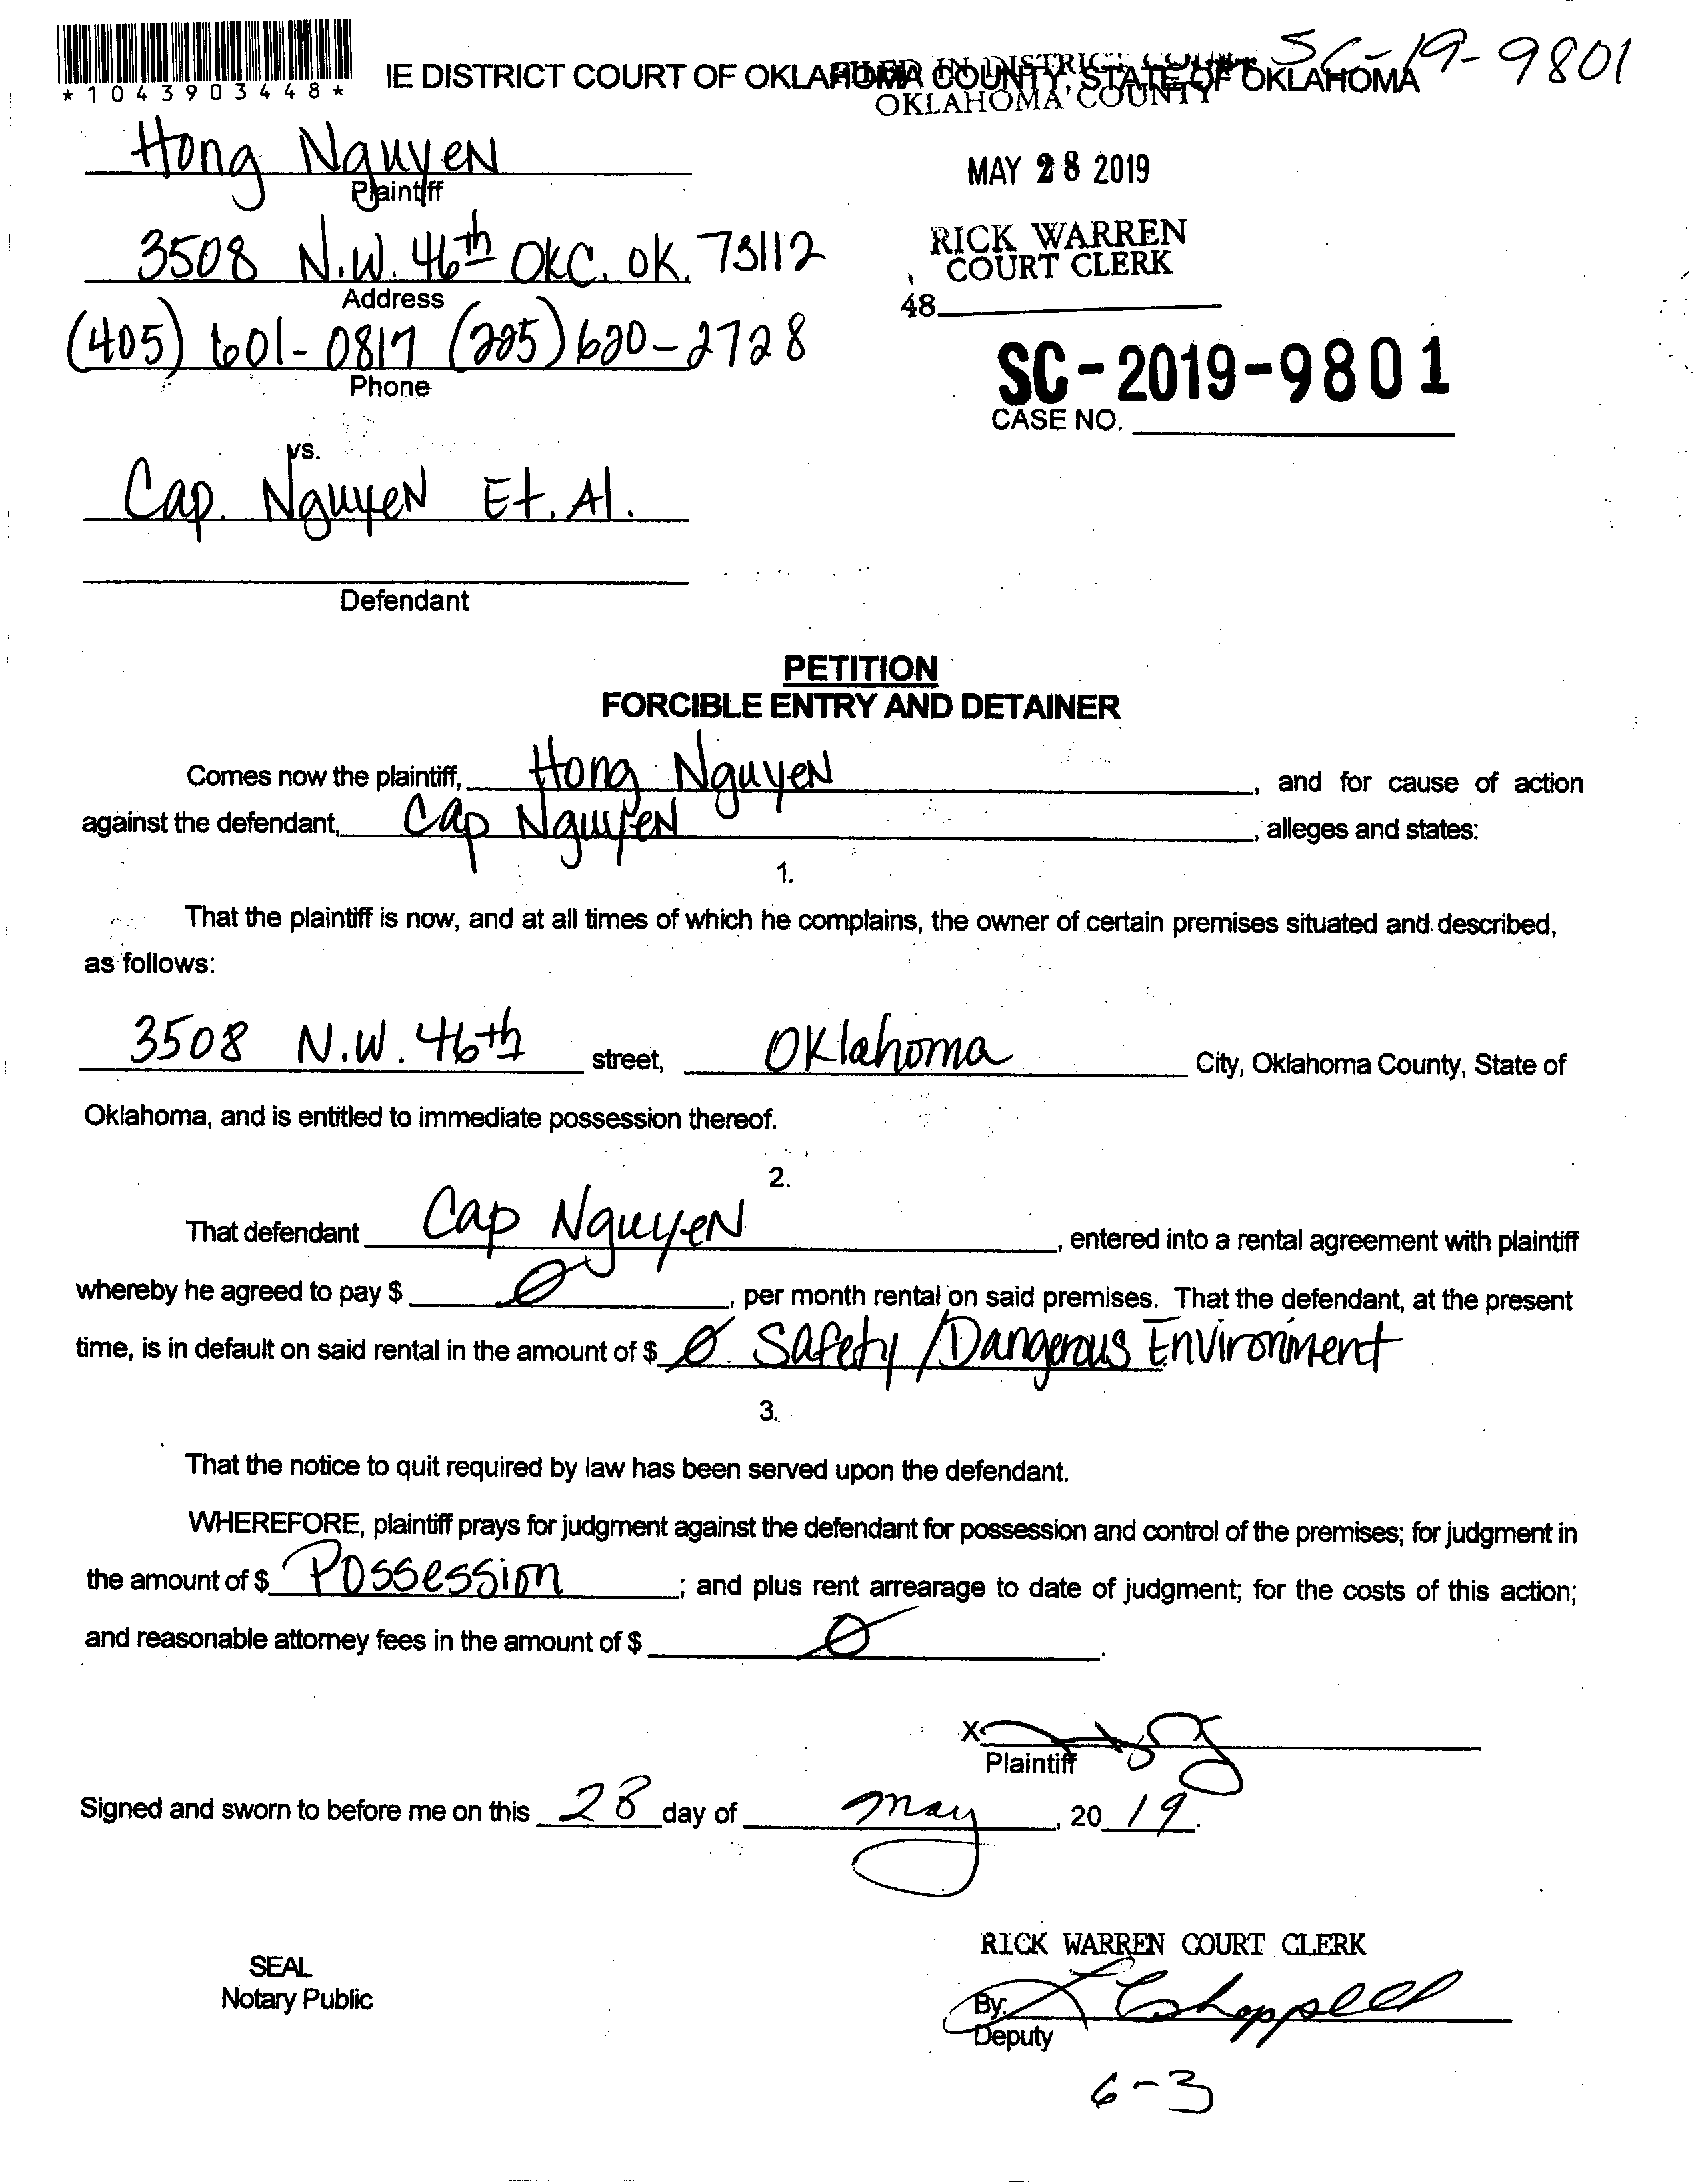 SC-19-9801
*1043903448*
IE DISTRICT COURT OF OKLAHOMA COUNTY, STATE OF OKLAHOMA
FILED IN DISTRICT COURT
OKLAHOMA COUNTY
Hong Nguyen
Plaintiff
MAY 28 2019
3508 N.W. 46th OKC. OK. 73112
Address
RICK WARREN
COURT CLERK
48
(405) 601-0817 (225) 620-2728
Phone
SC-2019-9801
CASE NO.
vs.
Cap. Nguyen Et. Al.
Defendant
PETITION
FORCIBLE ENTRY AND DETAINER
Comes now the plaintiff, Hong Nguyen, and for cause of action
against the defendant, Cap Nguyen, alleges and states:
1.
That the plaintiff is now, and at all times of which he complains, the owner of certain premises situated and described,
as follows:
3508 N.W. 46th street, Oklahoma City, Oklahoma County, State of
Oklahoma, and is entitled to immediate possession thereof.
2.
That defendant Cap Nguyen, entered into a rental agreement with plaintiff
whereby he agreed to pay $ Ø, per month rental on said premises. That the defendant, at the present
time, is in default on said rental in the amount of $ Ø Safety/Dangerous Environment
3.
That the notice to quit required by law has been served upon the defendant.
WHEREFORE, plaintiff prays for judgment against the defendant for possession and control of the premises; for judgment in
the amount of $ Possession; and plus rent arrearage to date of judgment; for the costs of this action;
and reasonable attorney fees in the amount of $ Ø.
X
Plaintiff
Signed and sworn to before me on this 28 day of May, 2019.
RICK WARREN COURT CLERK
SEAL
Notary Public
By: Chappell
Deputy
6-3